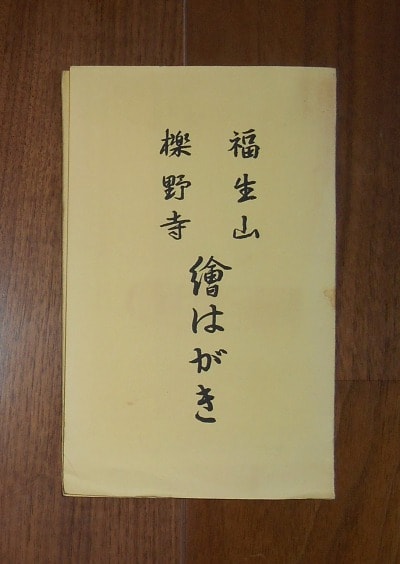 福生山
櫟野寺
繪はがき